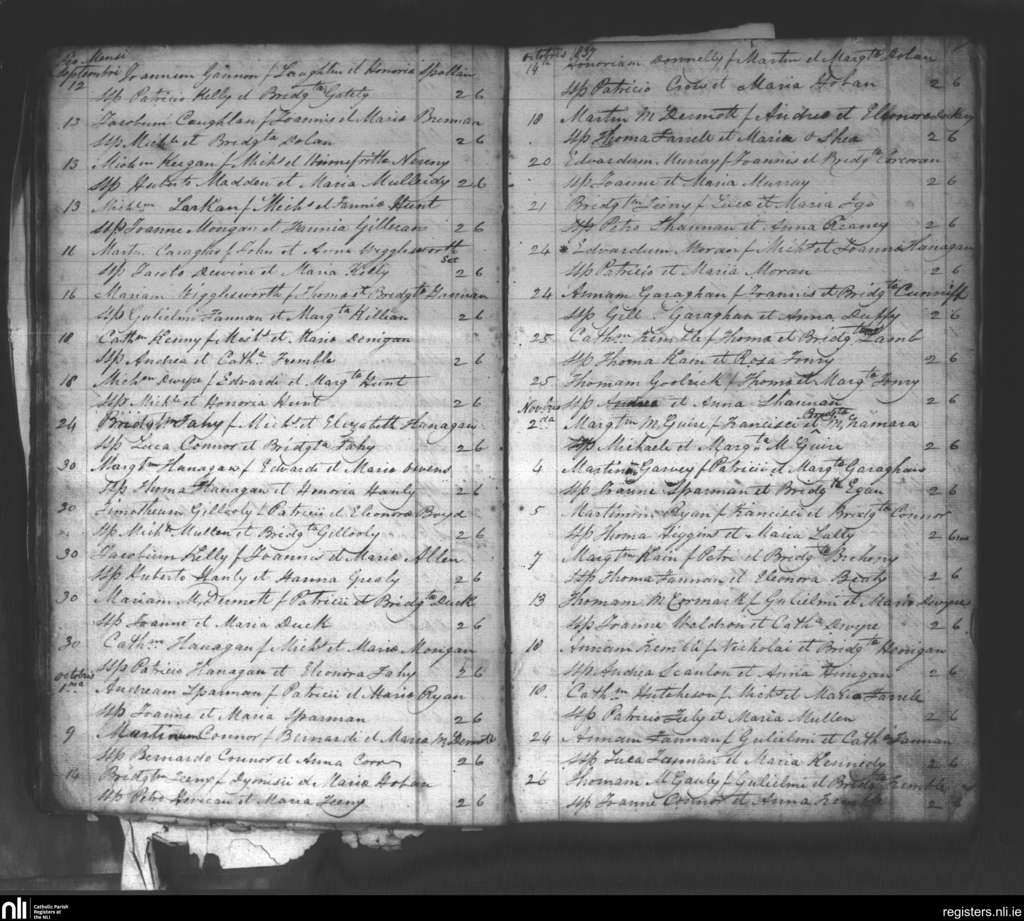 Septembris
12 Joannem Gannon f Laughlin et Honoria Spollin
Ssp Patricio Kelly et Bridgta Gately 2 6
13 Jacobum Coughlan f Joannis et Maria Brennan
Ssp Michle et Bridgta Dolan 2 6
13 Michm Keegan f Michl et Winnefritta Nerney
Ssp Huberto Madden et Maria Mulleidy 2 6
13 Michem Larkan f Michs et Fannia Hunt
Ssp Joanne Mongan et Hannia Gilleran 2 6
11 Martin Caragher f John et Anna Wigglesworth
Ssp Jacobo Dewine et Maria Kelly 2 6
16 Mariam Wigglesworth f Thoma et Bridgta Fannan
Ssp Gulielmi Fannan et Margta Killian 2 6
18 Cathm Kenny f Michl et Maria Donigan
Ssp Andrea et Catha Tremble 2 6
18 Michm Dwyre f Edvardi et Margta Hunt
Ssp Michle et Honoria Hunt 2 6
24 Bridgtm Fahy f Michl et Elizabeth Hanagan
Ssp Luca Connor et Bridgta Fahy 2 6
30 Margtm Flanagan f Edvardi et Maria Owens
Ssp Thoma Flanagan et Honoria Hanly 2 6
30 Timotheum Gillooly f Patricii et Eleonora Boyd
Ssp Michle Mullen et Bridgta Gilloorly 2 6
30 Jacobum Kelly f Joannis et Maria Allen
Ssp Huberto Hanly et Hanna Grealy 2 6
30 Mariam McDermott f Patricii et Bridgta Duck
Ssp Joanne et Maria Duck 2 6
30 Cathm Hanagan f Michl et Maria Mongan
Ssp Patricio Hanagan et Eleonora Fahy 2 6
Octobris
1ma Andream Sparman f Patricii et Maria Ryan
Ssp Joanne et Maria Sparman 2 6
9 Martinum Connor f Bernardi et Maria McDermott
Ssp Bernardo Connor et Anna Corr 2 6
14 Bridgtm Feeny f Dyonisii et Maria Hoban
Ssp Petro Henican et Maria Feeny 2 6
Octobris 1837
14th Honoriam Donnelly f Martin et Margta Dolan
Ssp Patricio Crows et Maria Hoban 2 6
18 Martin McDermott f Andrea et Eleonora
Ssp Thoma Farrell et Maria O Shea 2 6
20 Edvardum Murray f Joannis et Bridgta Corcoran
Ssp Joanne et Maria Murray 2 6
21 Bridgtm Feeny f Luca et Maria Igo
Ssp Petro Shannan et Anna Keaney 2 6
24 Edvardum Moran f Michl et Joanna Hanagan
Ssp Patricio et Maria Moran 2 6
24 Annam Garaghan f Joannis et Bridgta Cunniff
Ssp Gul Garaghan et Anna Duffy 2 6
25 Cathm Kemble f Thoma et Bridgta Lamb
Ssp Thoma Kain et Rosa Fonry 2 6
25 Thomam Goolrick f Thoma et Margta Fonry
Ssp Andrea et Anna Shannan 2 6
Novbris
2da Margtm McGuire f Francisci et Bridgta McNamara
Ssp Michaele et Margta McGuire 2 6
4 Martinum Garvey f Patricii et Margta Garaghan
Ssp Joanne Sparman et Bridgta Egan 2 6
5 Martinum Ryan f Francisci et Bridgta Connor
Ssp Thoma Higgins et Maria Lally 2 6
7 Margtm Kain f Petri et Bridgta Brehony
Ssp Thoma Fannan et Eleonora Bealy 2 6
13 Thomam McCormack f Gulielmi et Maria Dwyre
Ssp Joanne Waldron et Catha Dwyre 2 6
10 Annam Kemble f Nicholai et Bridgta Henigan
Ssp Andrea Scanlon et Anna Finigan 2 6
18 Cathm Hutcheson f Michl et Maria Farrell
Ssp Patricio Fely et Maria Mullen 2 6
24 Annam Fannan f Gulielmi et Catha Fannan
Ssp Luca Fannan et Maria Kennedy 2 6
26 Thomam McGauly f Gulielmi et Bridgta Kemble
Ssp Joanne Connor et Anna Kemble 2 6
nli Catholic Parish
Registers at
the NLI
registers.nli.ie